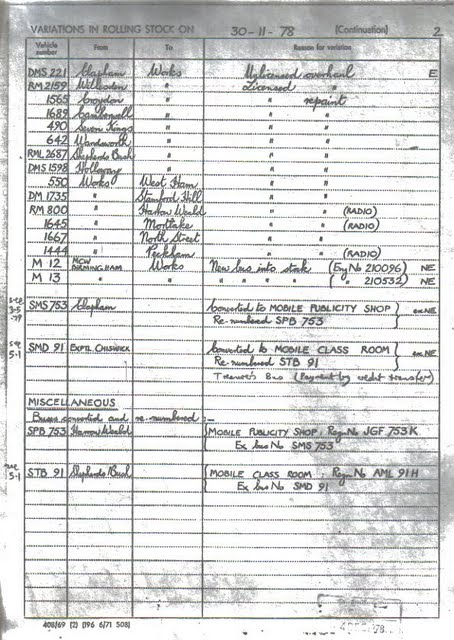 VARIATIONS IN ROLLING STOCK ON 30-11-78 (Continuation) 2.
Vehicle number From To Reason for variation
DMS 221 Clapham Works Unlicensed overhaul E
RM 2159 Willesden " Licensed "
1565 Croydon " " repaint
1689 Camberwell " " "
490 Seven Kings " " "
642 Wandsworth " " "
RML 2687 Shepherds Bush " " "
DMS 1598 Holloway " " "
550 Works West Ham " "
DM 1735 " Stamford Hill " "
RM 800 " Harrow Weald " " (RADIO)
1645 " Mortlake " " (RADIO)
1667 " North Street " "
1444 " Peckham " " (RADIO)
M 12 MCW BIRMINGHAM Works New bus into stock (Eng No 210096) NE
M 13 " " " " " " ( " " 210532) NE
see 3-5 -79
SMS 753 Clapham Converted to MOBILE PUBLICITY SHOP ex.NE
Re-numbered SPB 753
see 5-1
SMD 91 EXPTL CHISWICK Converted to MOBILE CLASS ROOM ex NE
Re-numbered STB 91
Bus (Payment by credit transfer)
MISCELLANEOUS
Buses converted and re-numbered:-
SPB 753 Harrow Weald MOBILE PUBLICITY SHOP: Regn No JGF 753K
Ex bus No SMS 753
see 5-1
STB 91 Shepherds Bush MOBILE CLASS ROOM: Regn No AML 91H
Ex bus No SMD 91
408/69 (2) (196 6/71 508)